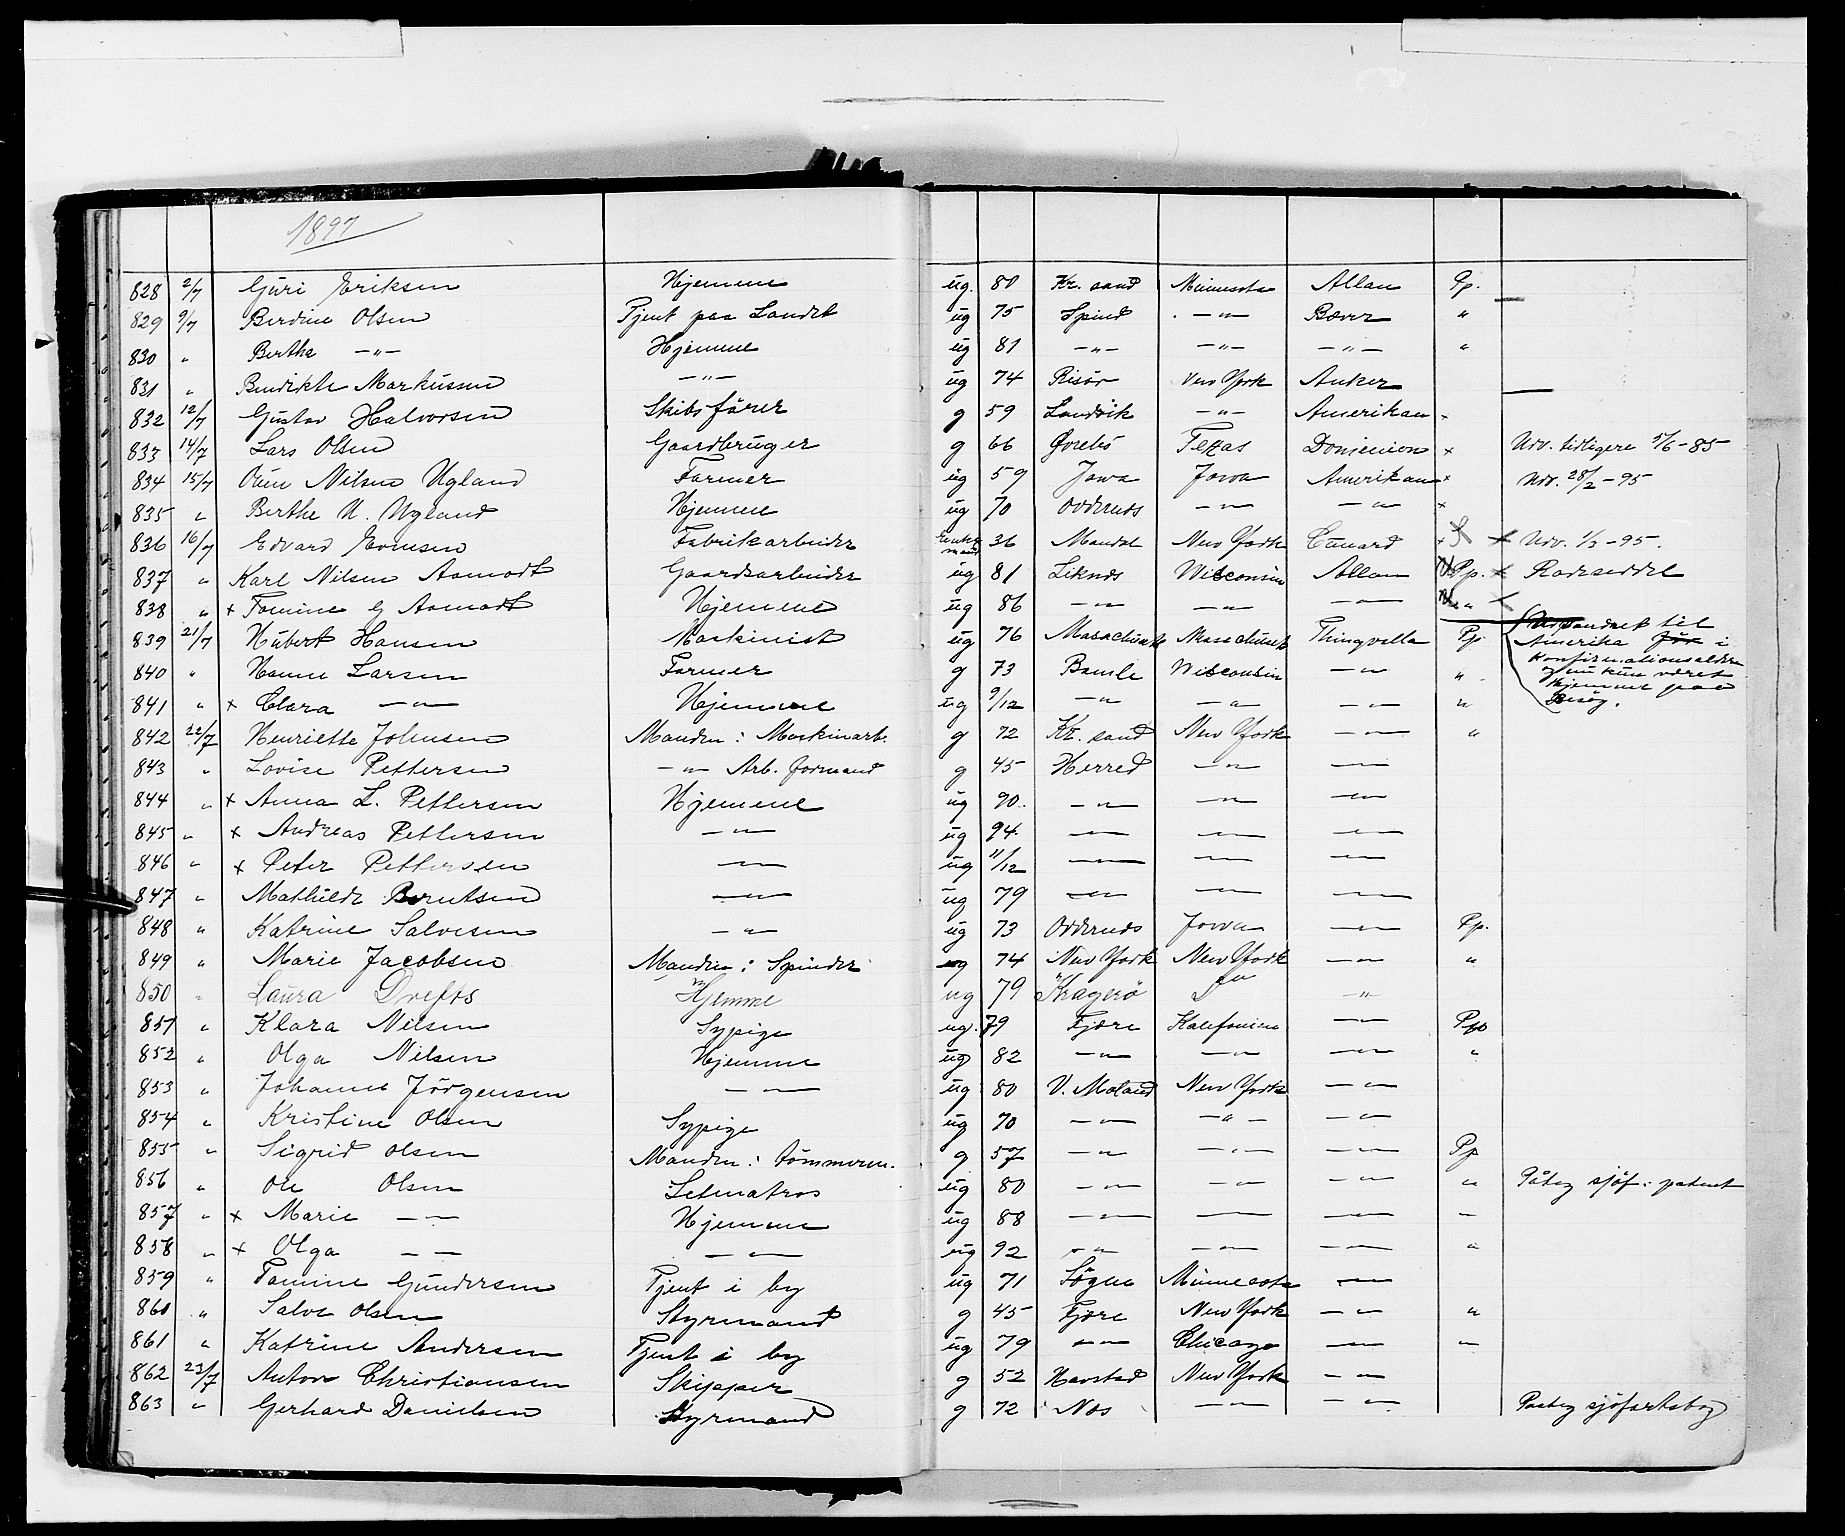 1897
828 2/7 Guri Eriksen Hjemme ug. 80 Kr. sand Minnesota Allan Pp.
829 9/7 Berdine Olsen Tjent paa Landet ug 75 Spind — " — Bæver "
830 " Berthe — " — Hjemme ug 81 — " — — " — — " — "
831 " Bendikte Markussen — " — ug 74 Risör New York Anker
832 12/7 Gustav Halvorsen Skibsförer g 59 Landvik — " — Amerikan
833 14/7 Lars Olsen Gaardbruger g 66 Øvrebö Texas Donimion × Udv. tidligere 5/6 - 85
834 15/7 Nilsen Ugland Farmer ug 59 Jowa Jowa Amerikan × Udv. 28/2 - 95
835 " Berthe N. Ugland Hjemme ug 70 Oddernes — " — — " — ×
836 16/7 Edvard Evensen Fabrikarbeider Enkemand 36 Mandal New York Cunard × Udv. 1/3 - 95.
837 " Karl Nilsen Aamodt Gaardsarbeider ug 81 Liknes Wisconsin Allan Pp. × Rodeseddel
838 " × Tomine G Aamodt Hjemme ug 86 — " — — " — — " — "
839 21/7 Hubert Hansen Maskinist ug 76 Masachusets Massachusets Thingvalla Pp Udvandret til
Amerika för i
konfirmationsalderen
og nu kun været
hjemme paa
Besög.
840 " Hanne Larsen Farmer g 73 Bamle Wisconsin — " — "
841 " × Clara — " — Hjemme ug 9/12 — " — — " — — " — "
842 22/7 Henriette Johnsen Manden: Maskinarb. g 72 Kr. sand New York — " — "
843 " Lovise Pettersen — " — Arb. formand g 45 Herred — " — — " —
844 " × Anna L. Pettersen Hjemme ug 90. — " — — " — — " —
845 " × Andreas Pettersen — " — ug 94. — " — — " — — " —
846 " × Peter Pettersen — " — ug 11/12 — " — — " — — " —
847 " Mathilde Berntsen — " — ug 79 — " — — " — — " —
848 " Katrine Salvesen — " — ug 73 Oddernes Jowa — " — Pp.
849 " Marie Jacobsen Manden: Spinder g 74 New York New York — " — "
850 " Laura Drefts Hjemme ug 79 Kragerö " "
851 " Klara Nilsen Sypige ug. 79 Fjære Kalefonien — " — Pp
852 " Olga Nilsen Hjemme ug 82 — " — — " — — " — "
853 " Johanne Jörgensen — " — ug 80 V. Moland New York — " —
854 " Kristine Olsen Sypige ug 70 — " — — " — — " —
855 " Sigrid Olsen Manden: tömmerm. g 57 — " — — " — — " — Pp
856 " Ole Olsen Letmatros ug 80 — " — — " — — " — " Påteg sjöf: patent
857 " × Marie — " — Hjemme ug 88 — " — — " — — " — "
858 " × Olga — " — — " — ug 92 — " — — " — — " — "
859 " Tomine Gundersen Tjent i by ug 71 Sögne Minnesota — " —
860 " Salve Olsen Styrmand g 45 Fjære New York — " — "
861 " Katrine Andersen Tjent i by ug 79 — " — Chicago — " — "
862 23/7 Anton Christiansen Skipper g 52 Havstad New York — " —
863 " Gerhard Danielsen Styrmand g 72 Næs — " — — " — Paateg sjöfartsbog